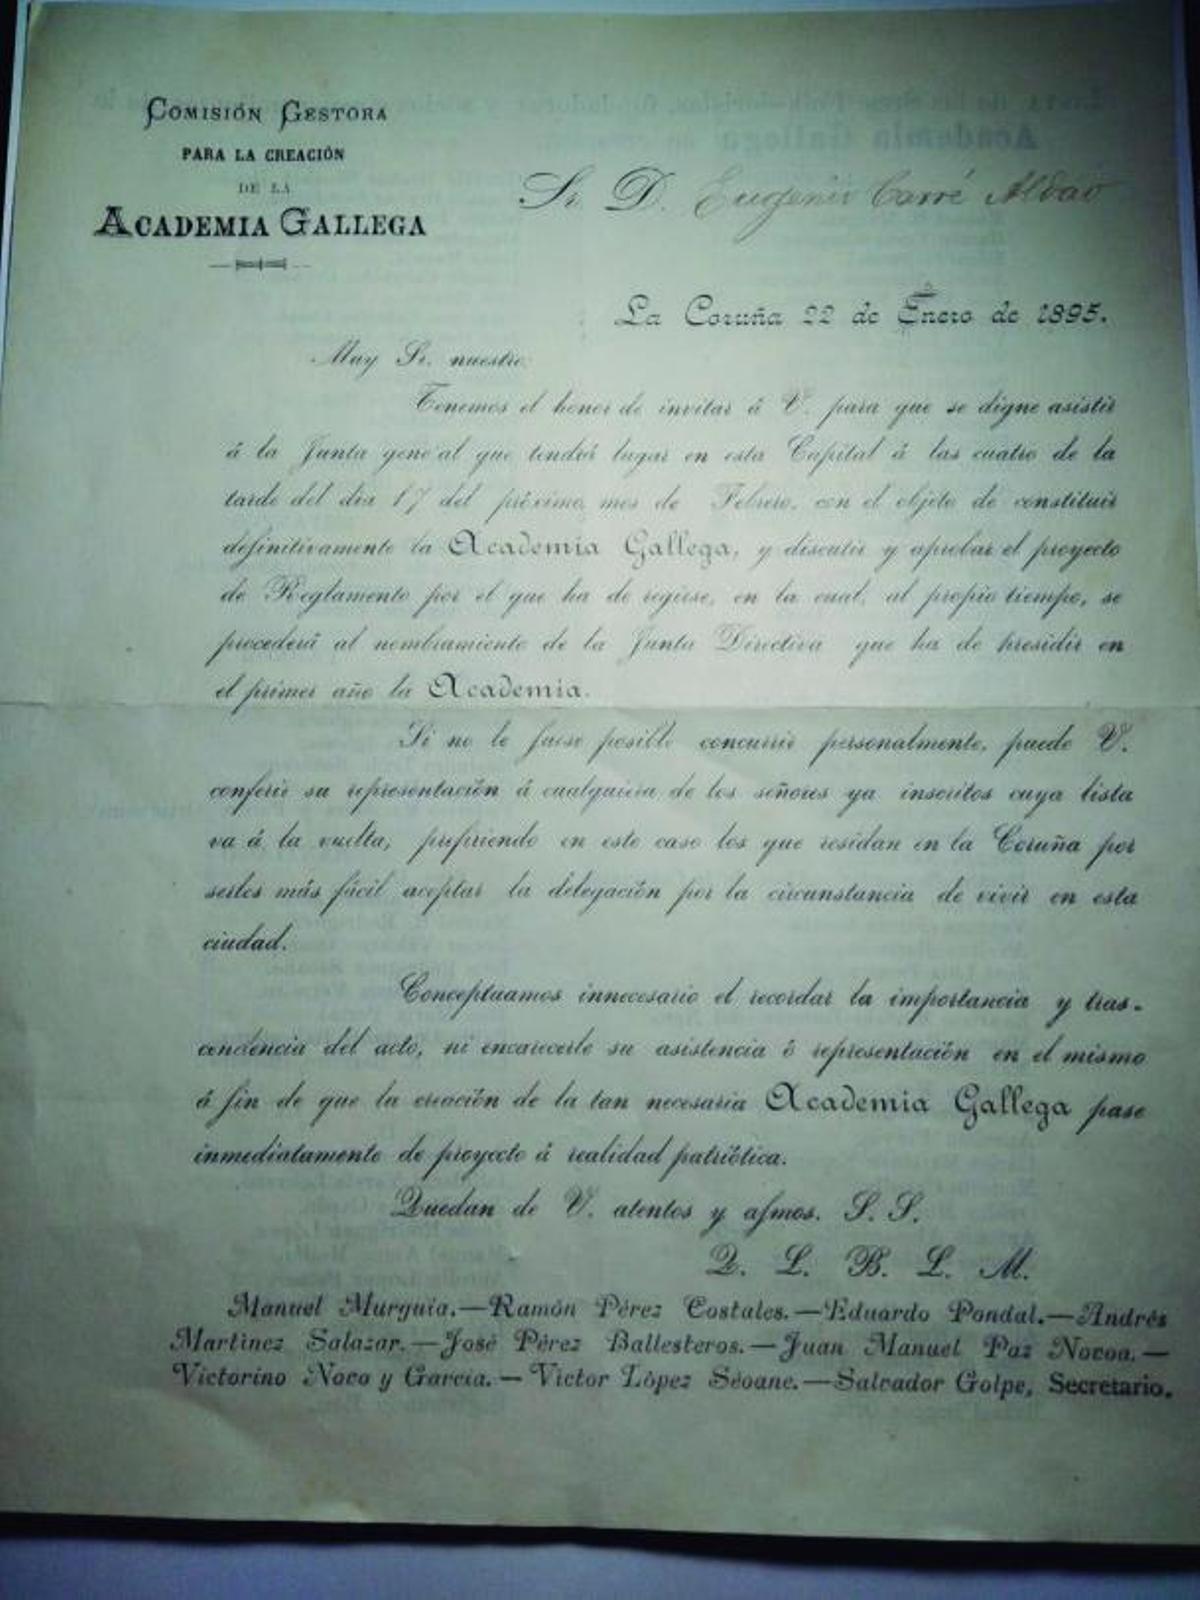 COMISIÓN GESTORA
PARA LA CREACIÓN
DE LA
ACADEMIA GALLEGA
Sr. D. Eugenio Carré Aldao
La Coruña 22 de Enero de 1895.
Muy Sr. nuestro:
Tenemos el honor de invitar á V. para que se digne asistir
á la Junta general que tendrá lugar en esta Capital á las cuatro de la
tarde del dia 17 del próximo mes de Febrero, con el objeto de constituir
definitivamente la Academia Gallega, y discutir y aprobar el proyecto
de Reglamento por el que ha de regirse, en la cual, al propio tiempo, se
procederá al nombramiento de la Junta Directiva que ha de presidir en
el primer año la Academia.
Si no le fuese posible concurrir personalmente, puede V.
conferir su representación á cualquiera de los señores ya inscritos cuya lista
va á la vuelta, prefiriendo en este caso los que residan en la Coruña por
serles más fácil aceptar la delegación por la circunstancia de vivir en esta
ciudad.
Conceptuamos innecesario el recordar la importancia y tras-
cendencia del acto, ni encarecerle su asistencia ó representación en el mismo
á fin de que la creación de la tan necesaria Academia Gallega pase
inmediatamente de proyecto á realidad patriótica.
Quedan de V. atentos y afmos. S. S.
Q. L. B. L. M.
Manuel Murguia.—Ramón Pérez Costales.—Eduardo Pondal.—Andrés
Martinez Salazar.—José Pérez Ballesteros.—Juan Manuel Paz Novoa.—
Victorino Novo y Garcia.—Victor López Seoane.—Salvador Golpe, Secretario.